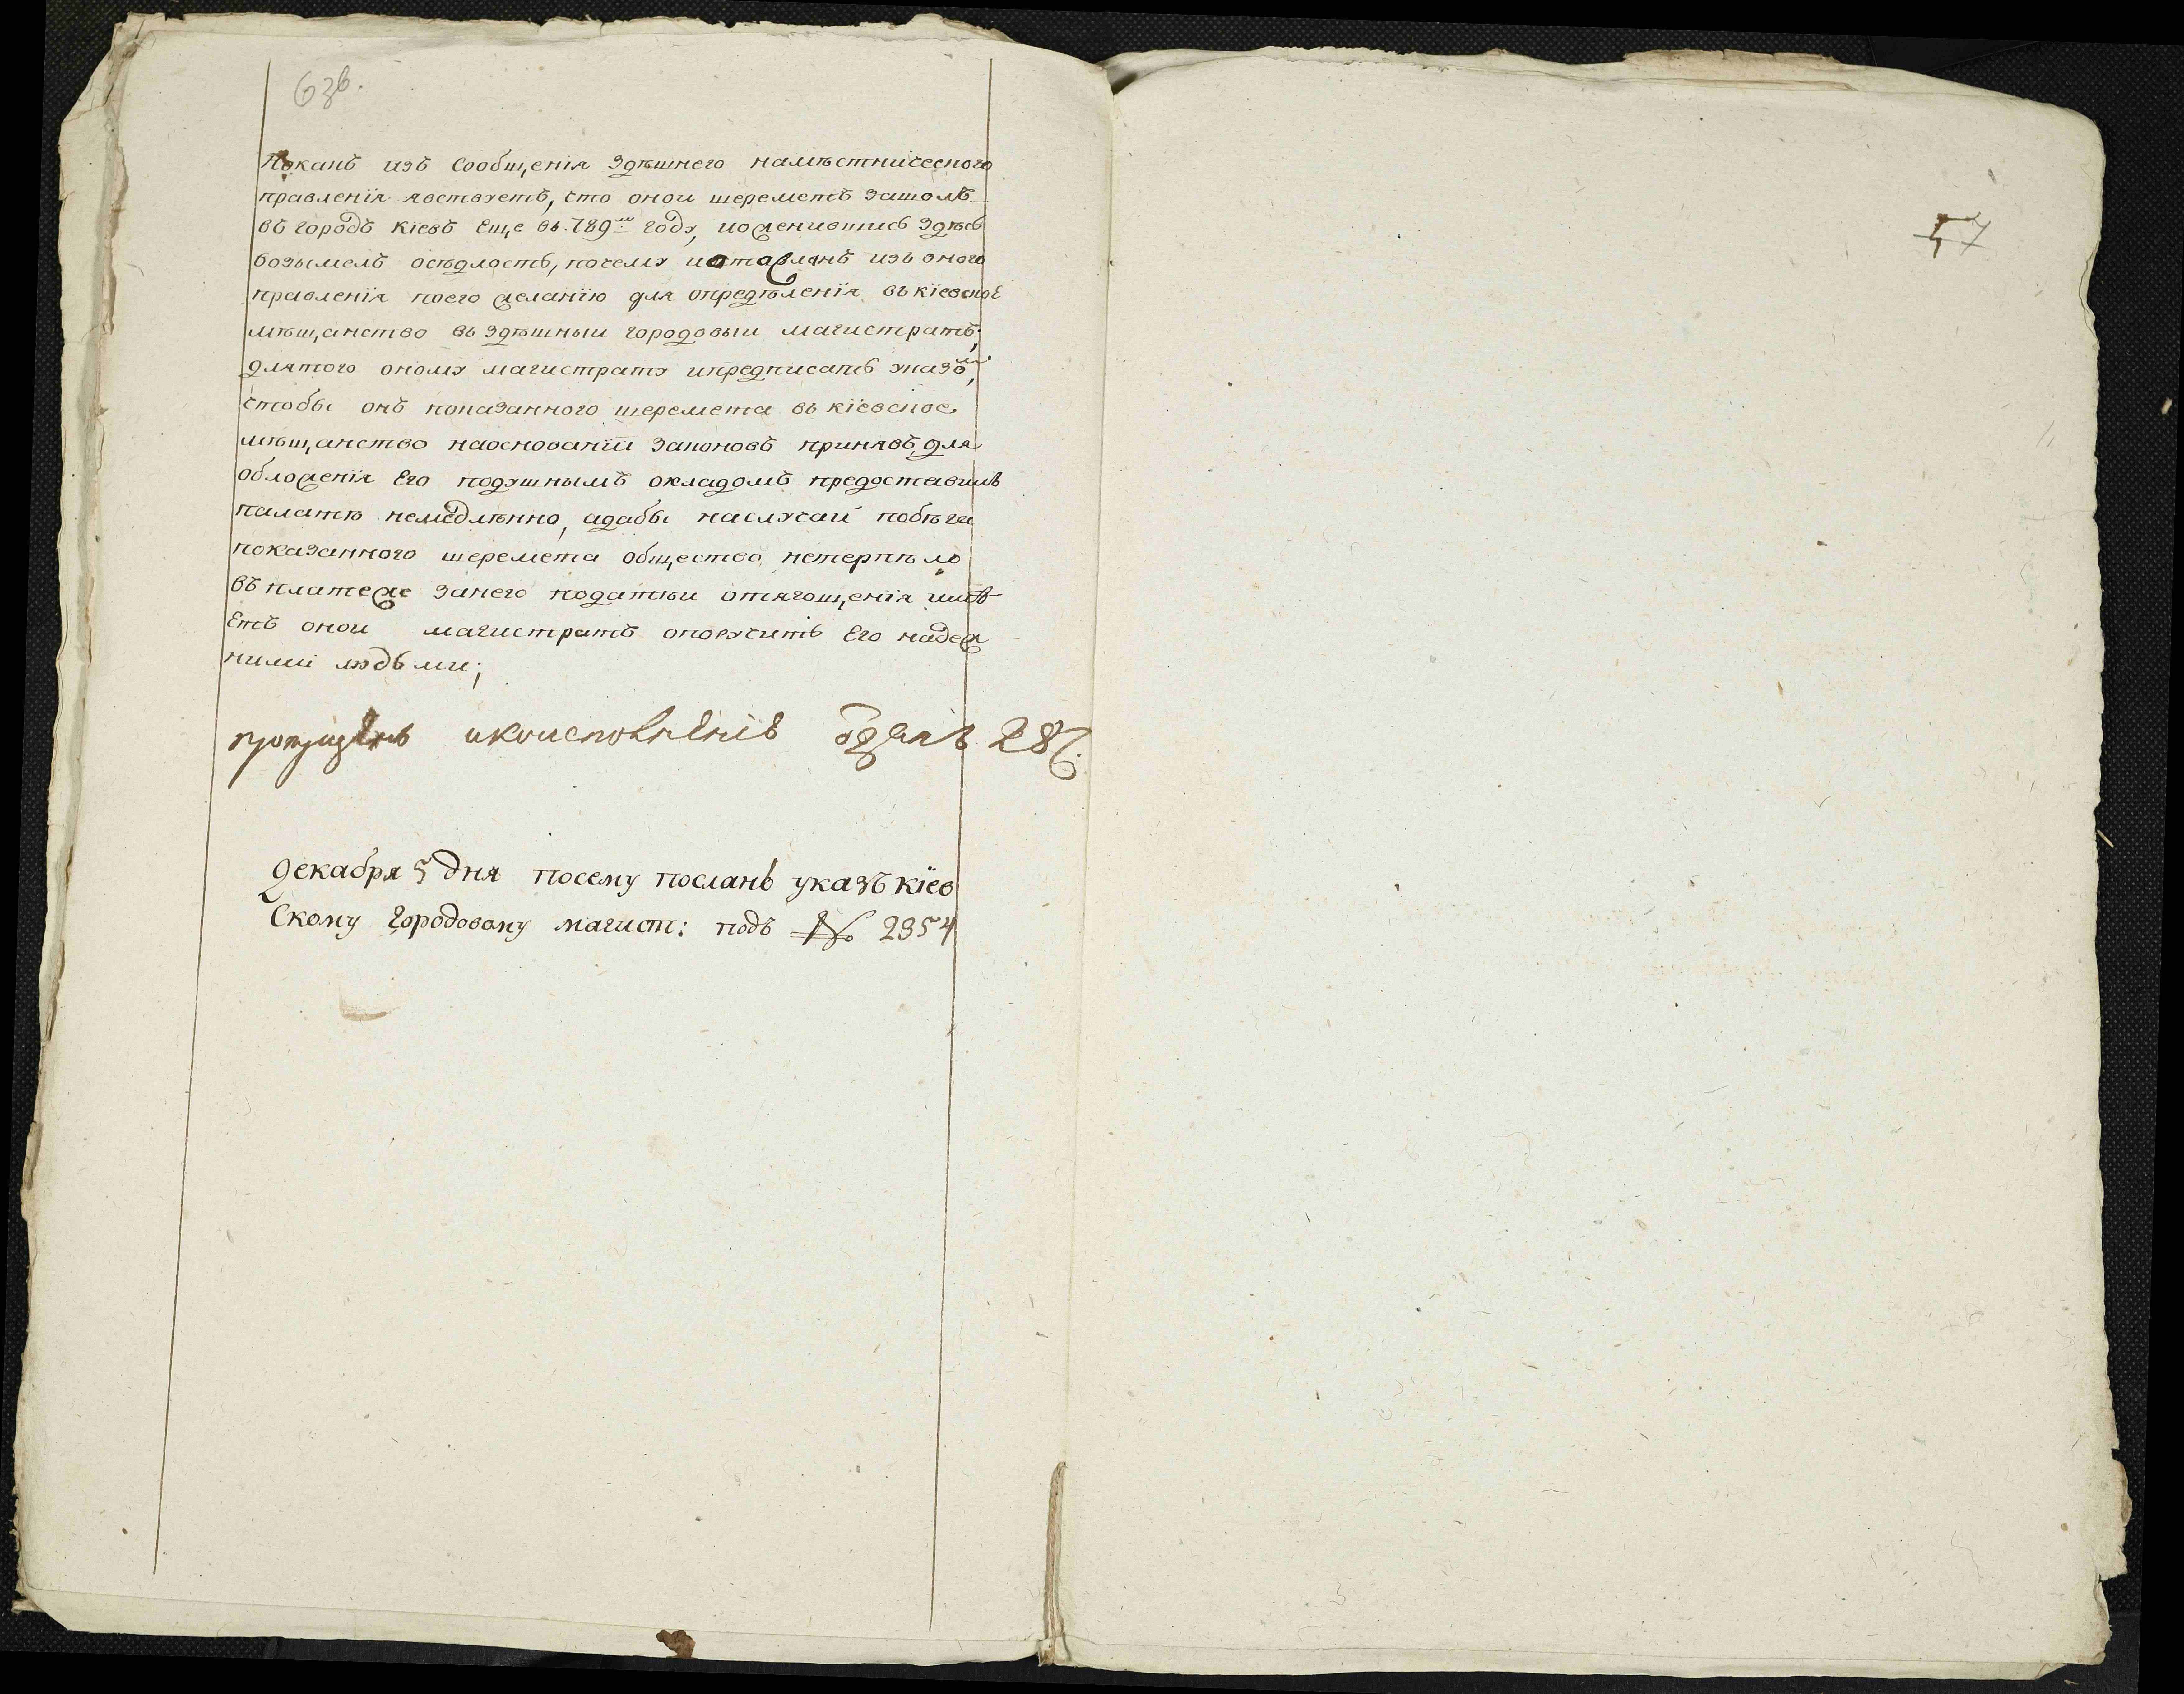 63в.
Какъ изъ Сообщенія здѣшнего намѣстническаго
правленія явствуетъ, что оной шереметъ зашолъ
въ городъ кіевъ Еще въ 789м году, иоженившись здѣсь
возымелъ осѣдлость, почему иотосланъ изъ оного
правленія поего желанію для опредѣленія въ кіевское
мѣщанство въ здѣшный городовый магистратъ;
длятого оному магистрату ипредписать указомъ,
Чтобы онъ показанного шеремета въ кіевское
мѣщанство наоснованіи законовъ принявъ, для
обложенія Его подушнымъ окладомъ предоставилъ
палатѣ немедлѣнно, адабы наслучай побѣга
показанного шеремета общество нетерпѣло
въ платеже занего податѣи отягощенія имѣ
Етъ оной магистратъ опоручить Его надеж
ними людьми;
кисполненію отданъ 286.
Декабря 5 дня посему посланъ указъ кіев
Скому Городовому магист: подъ № 2954
57